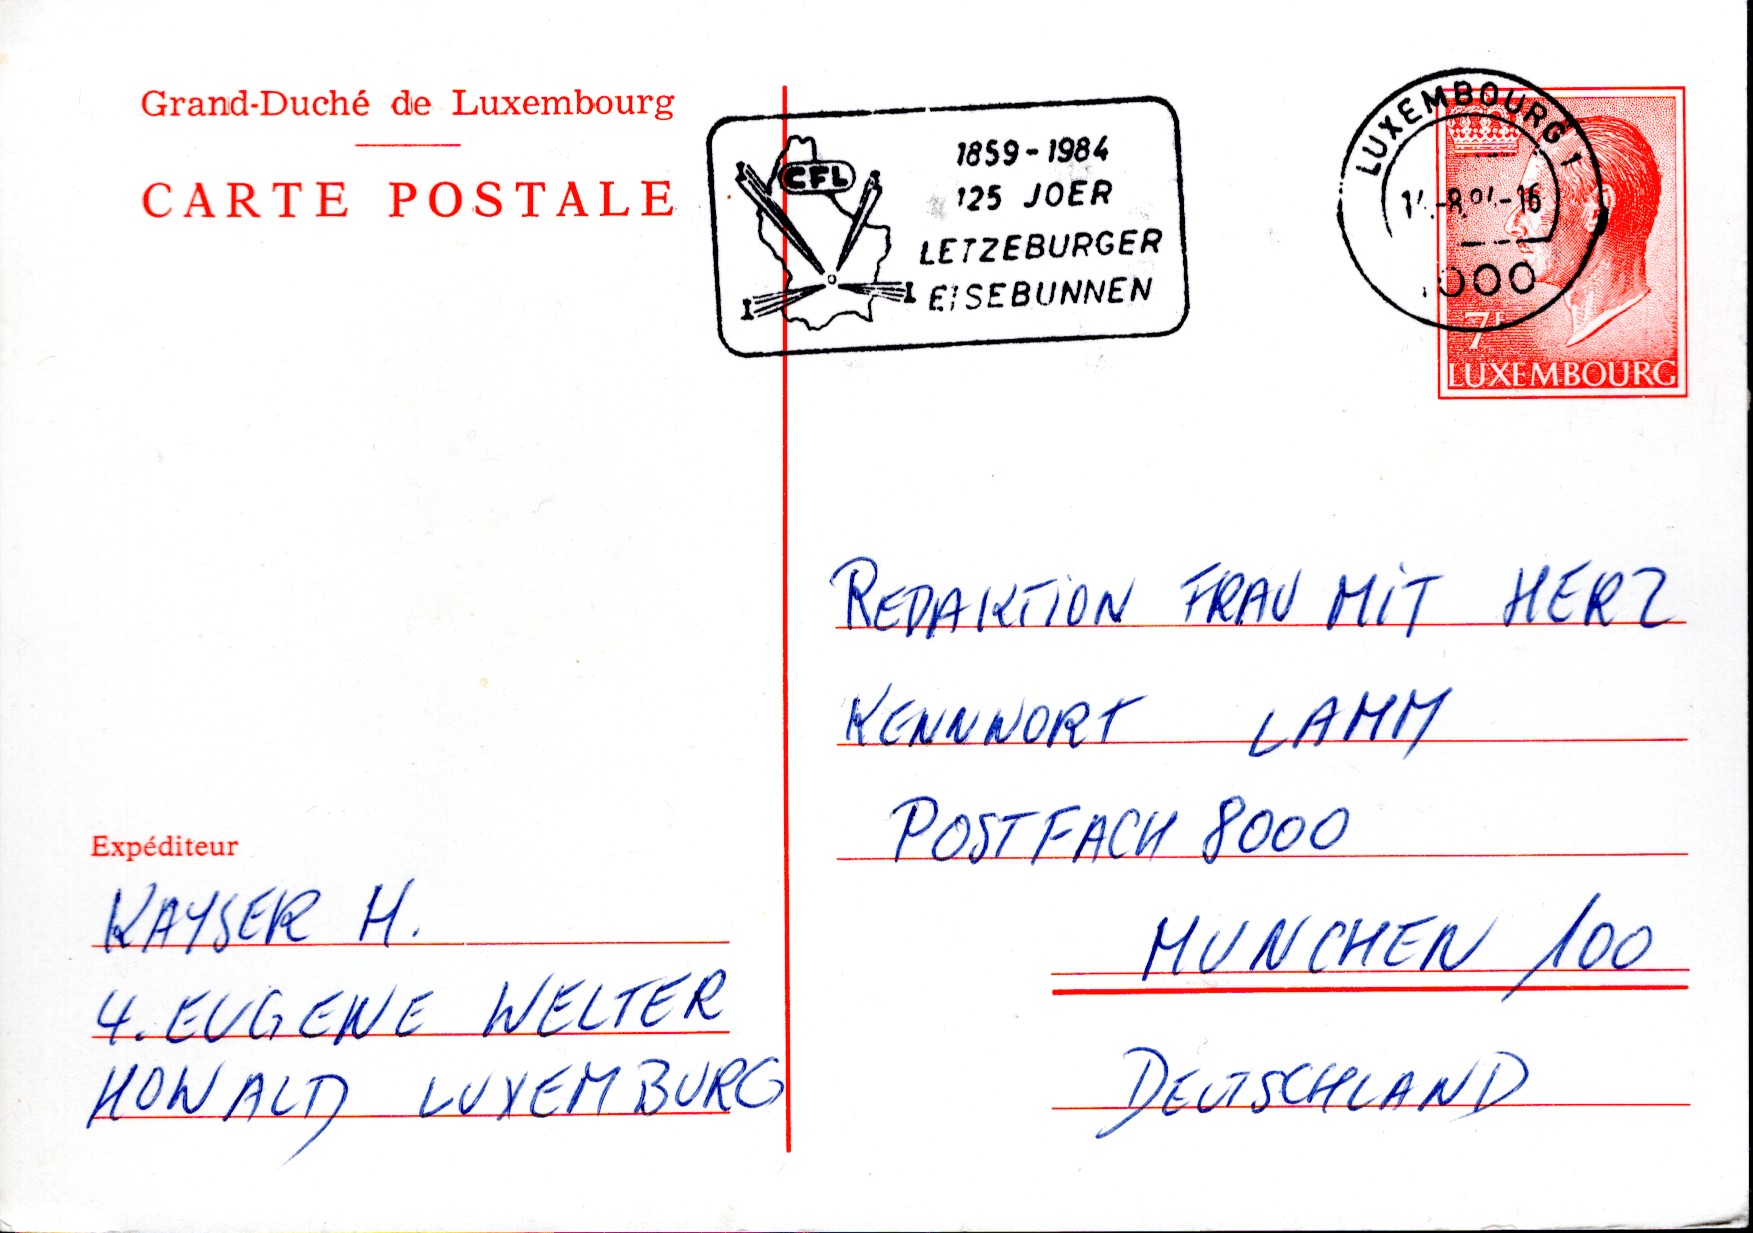 Grand-Duché de Luxembourg
CARTE POSTALE
CFL
1859-1984
125 JOER
LETZEBURGER
EISEBUNNEN
LUXEMBOURG 1
-16
1000
7F
LUXEMBOURG
REDAKTION FRAU MIT HERZ
KENNWORT LAMM
POSTFACH 8000
MUNCHEN 100
DEUTSCHLAND
Expéditeur
KAYSER H.
4. EUGENE WELTER
HOWALD LUXEMBURG